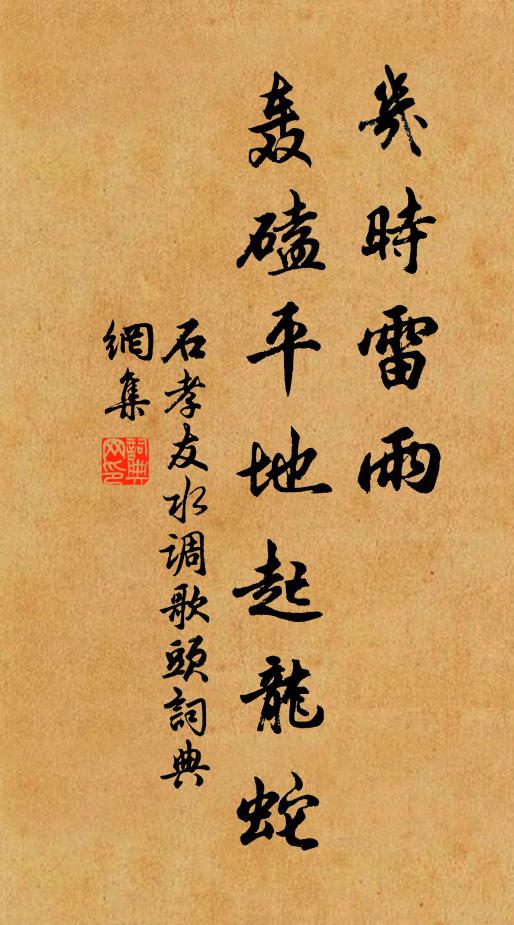 幾時雷雨
轟磕平地起龍蛇
石孝友水调歌頭詞典
網集
詞典网印